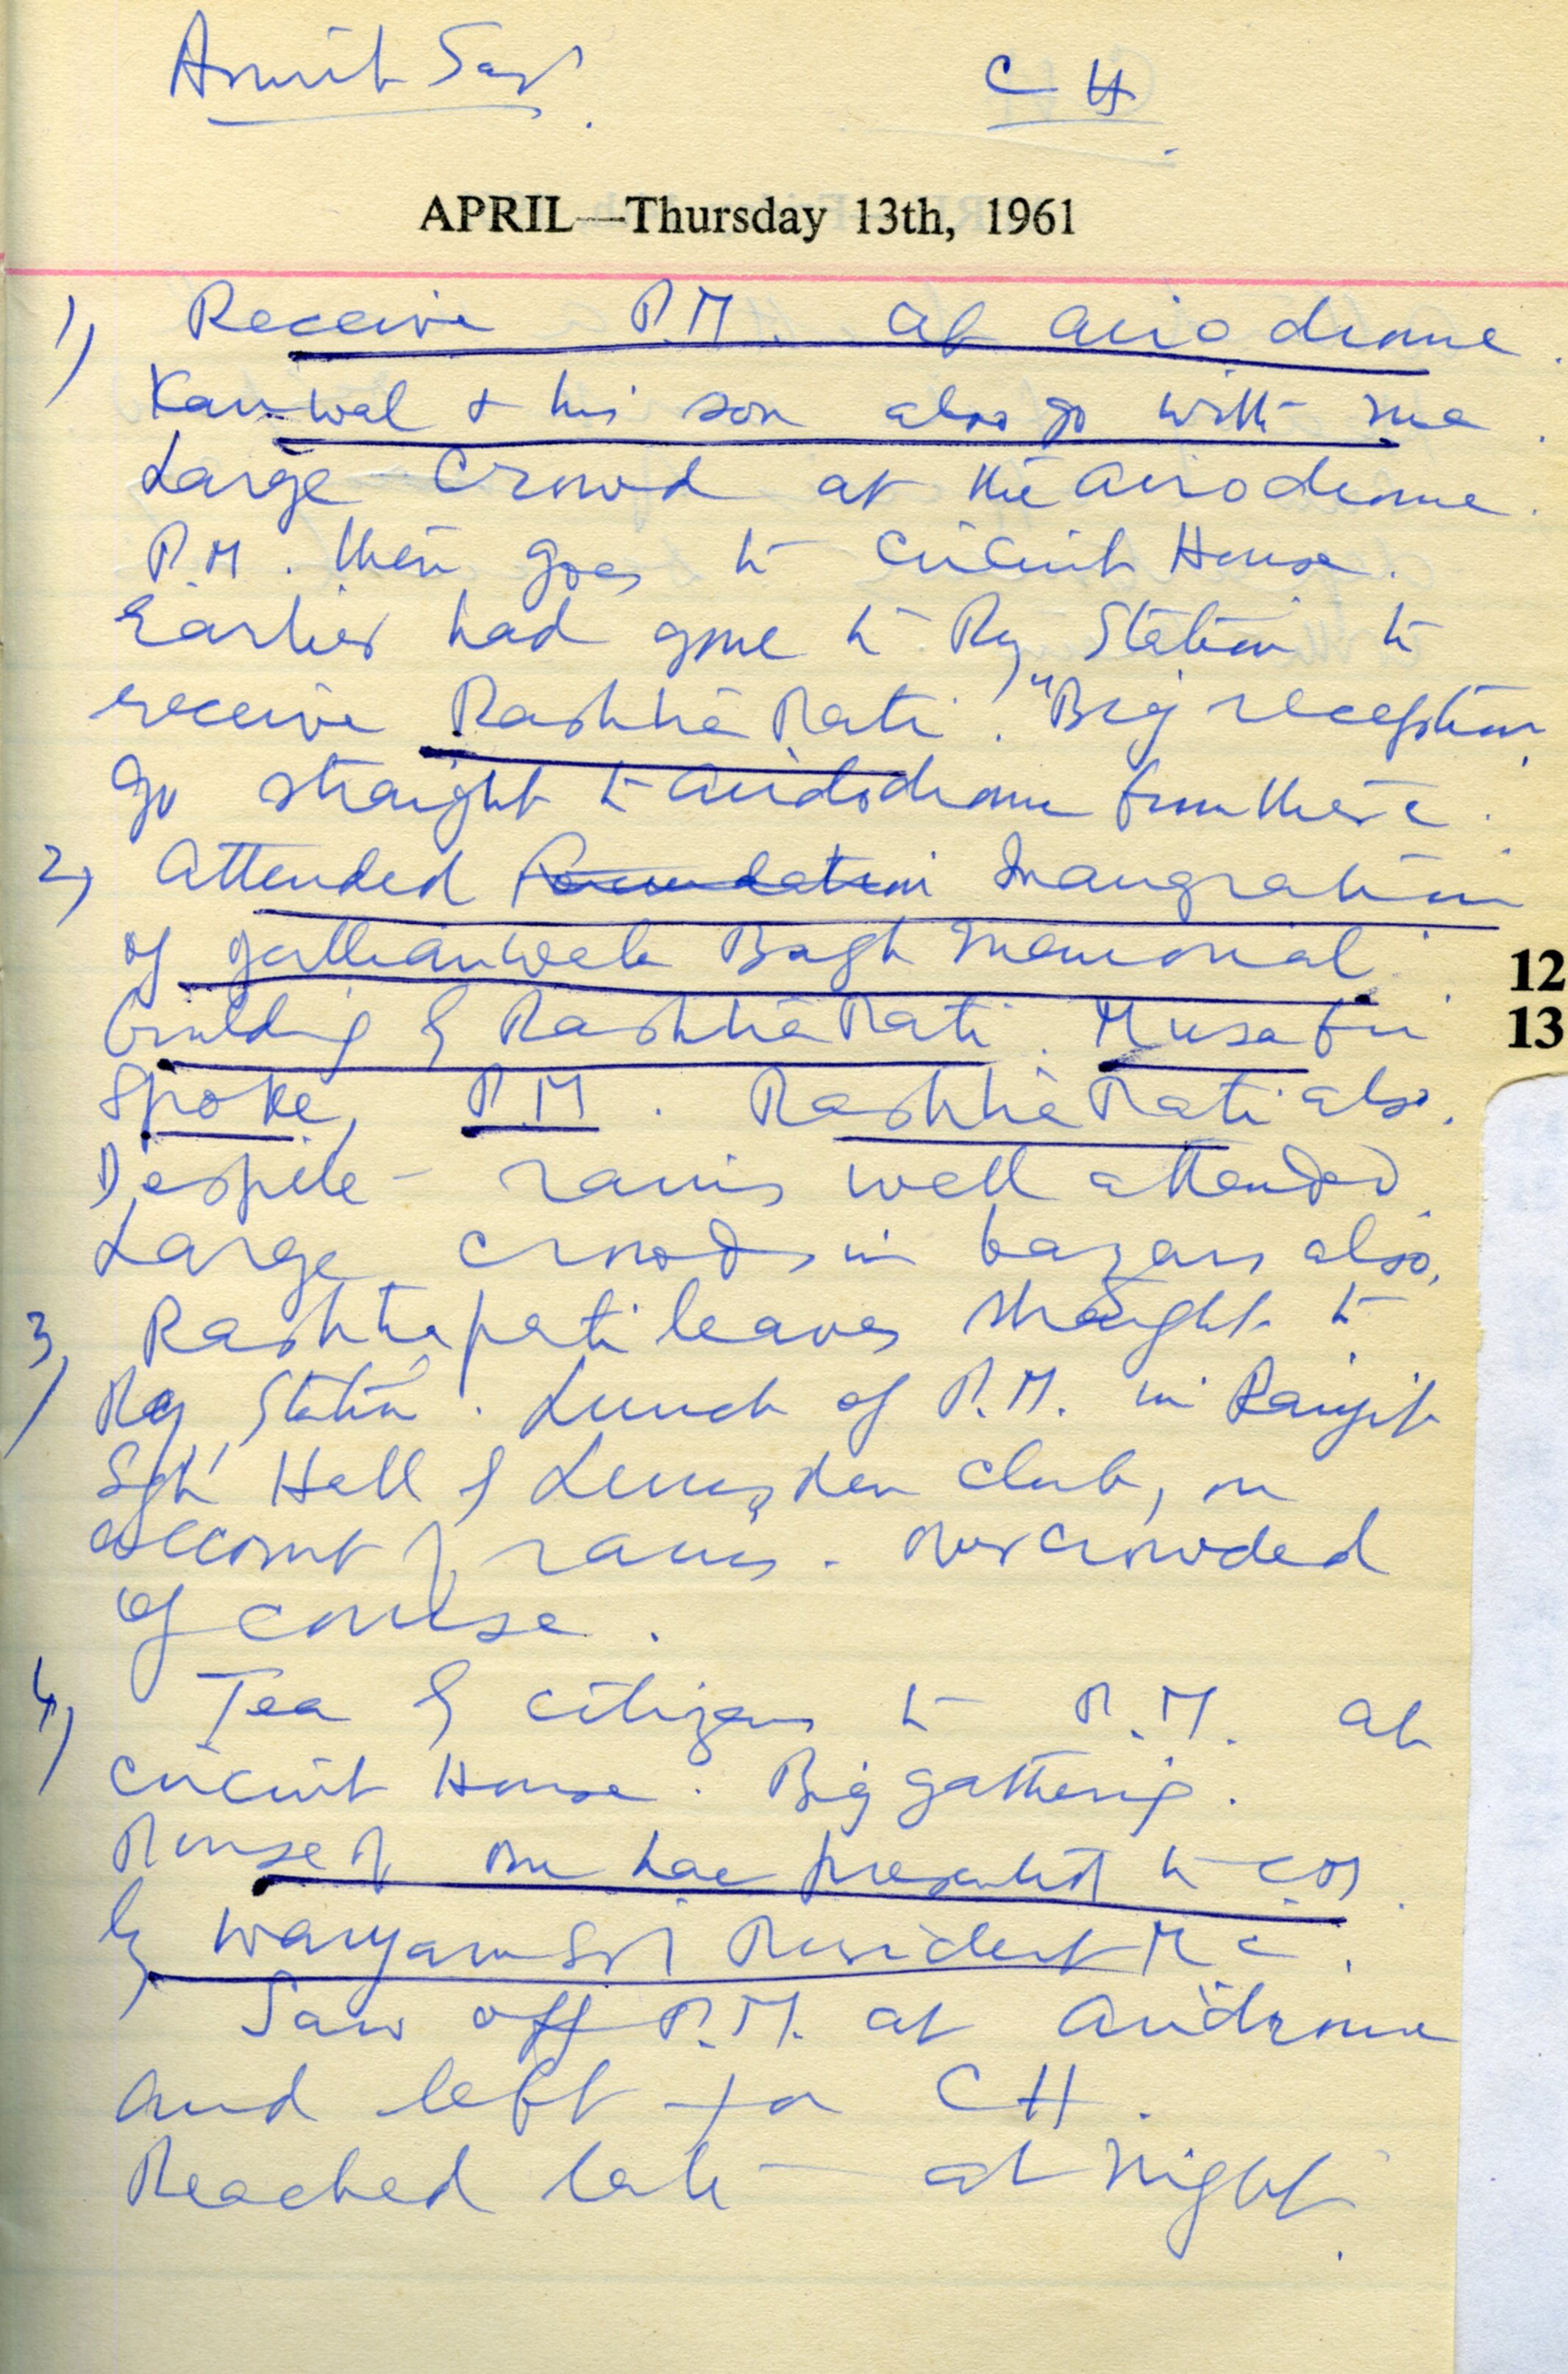 Amritsar. C H.
APRIL—Thursday 13th, 1961
1) Receive P.M. at airodrome.
Kanwal + his son also go with me.
Large Crowd at the airodrome.
P.M. then goes to Circuit House.
Earlier had gone to Ry Station to
receive RashtraPati. Big reception
go straight to airodrome from there.
2) Attended Foundation Inaugration
of Jallianwala Bagh Memorial
12
building of RashtraPati. Musafir
13
Spoke, P.M. RashtraPati also.
Despite rains well attended.
Large crowds in bazars also.
3) Rashtrapati leaves straight to
Ry Station. Lunch of P.M. in Ranjit
Sgh Hall of Lumsden Club, on
account of rains. Overcrowded
of course.
4) Tea of citizens to P.M. at
Circuit House. Big gathering.
Purse of one lac presented to
by Waryam President M C.
Saw off P.M. at airdrome
and left for C H.
Reached late at night.